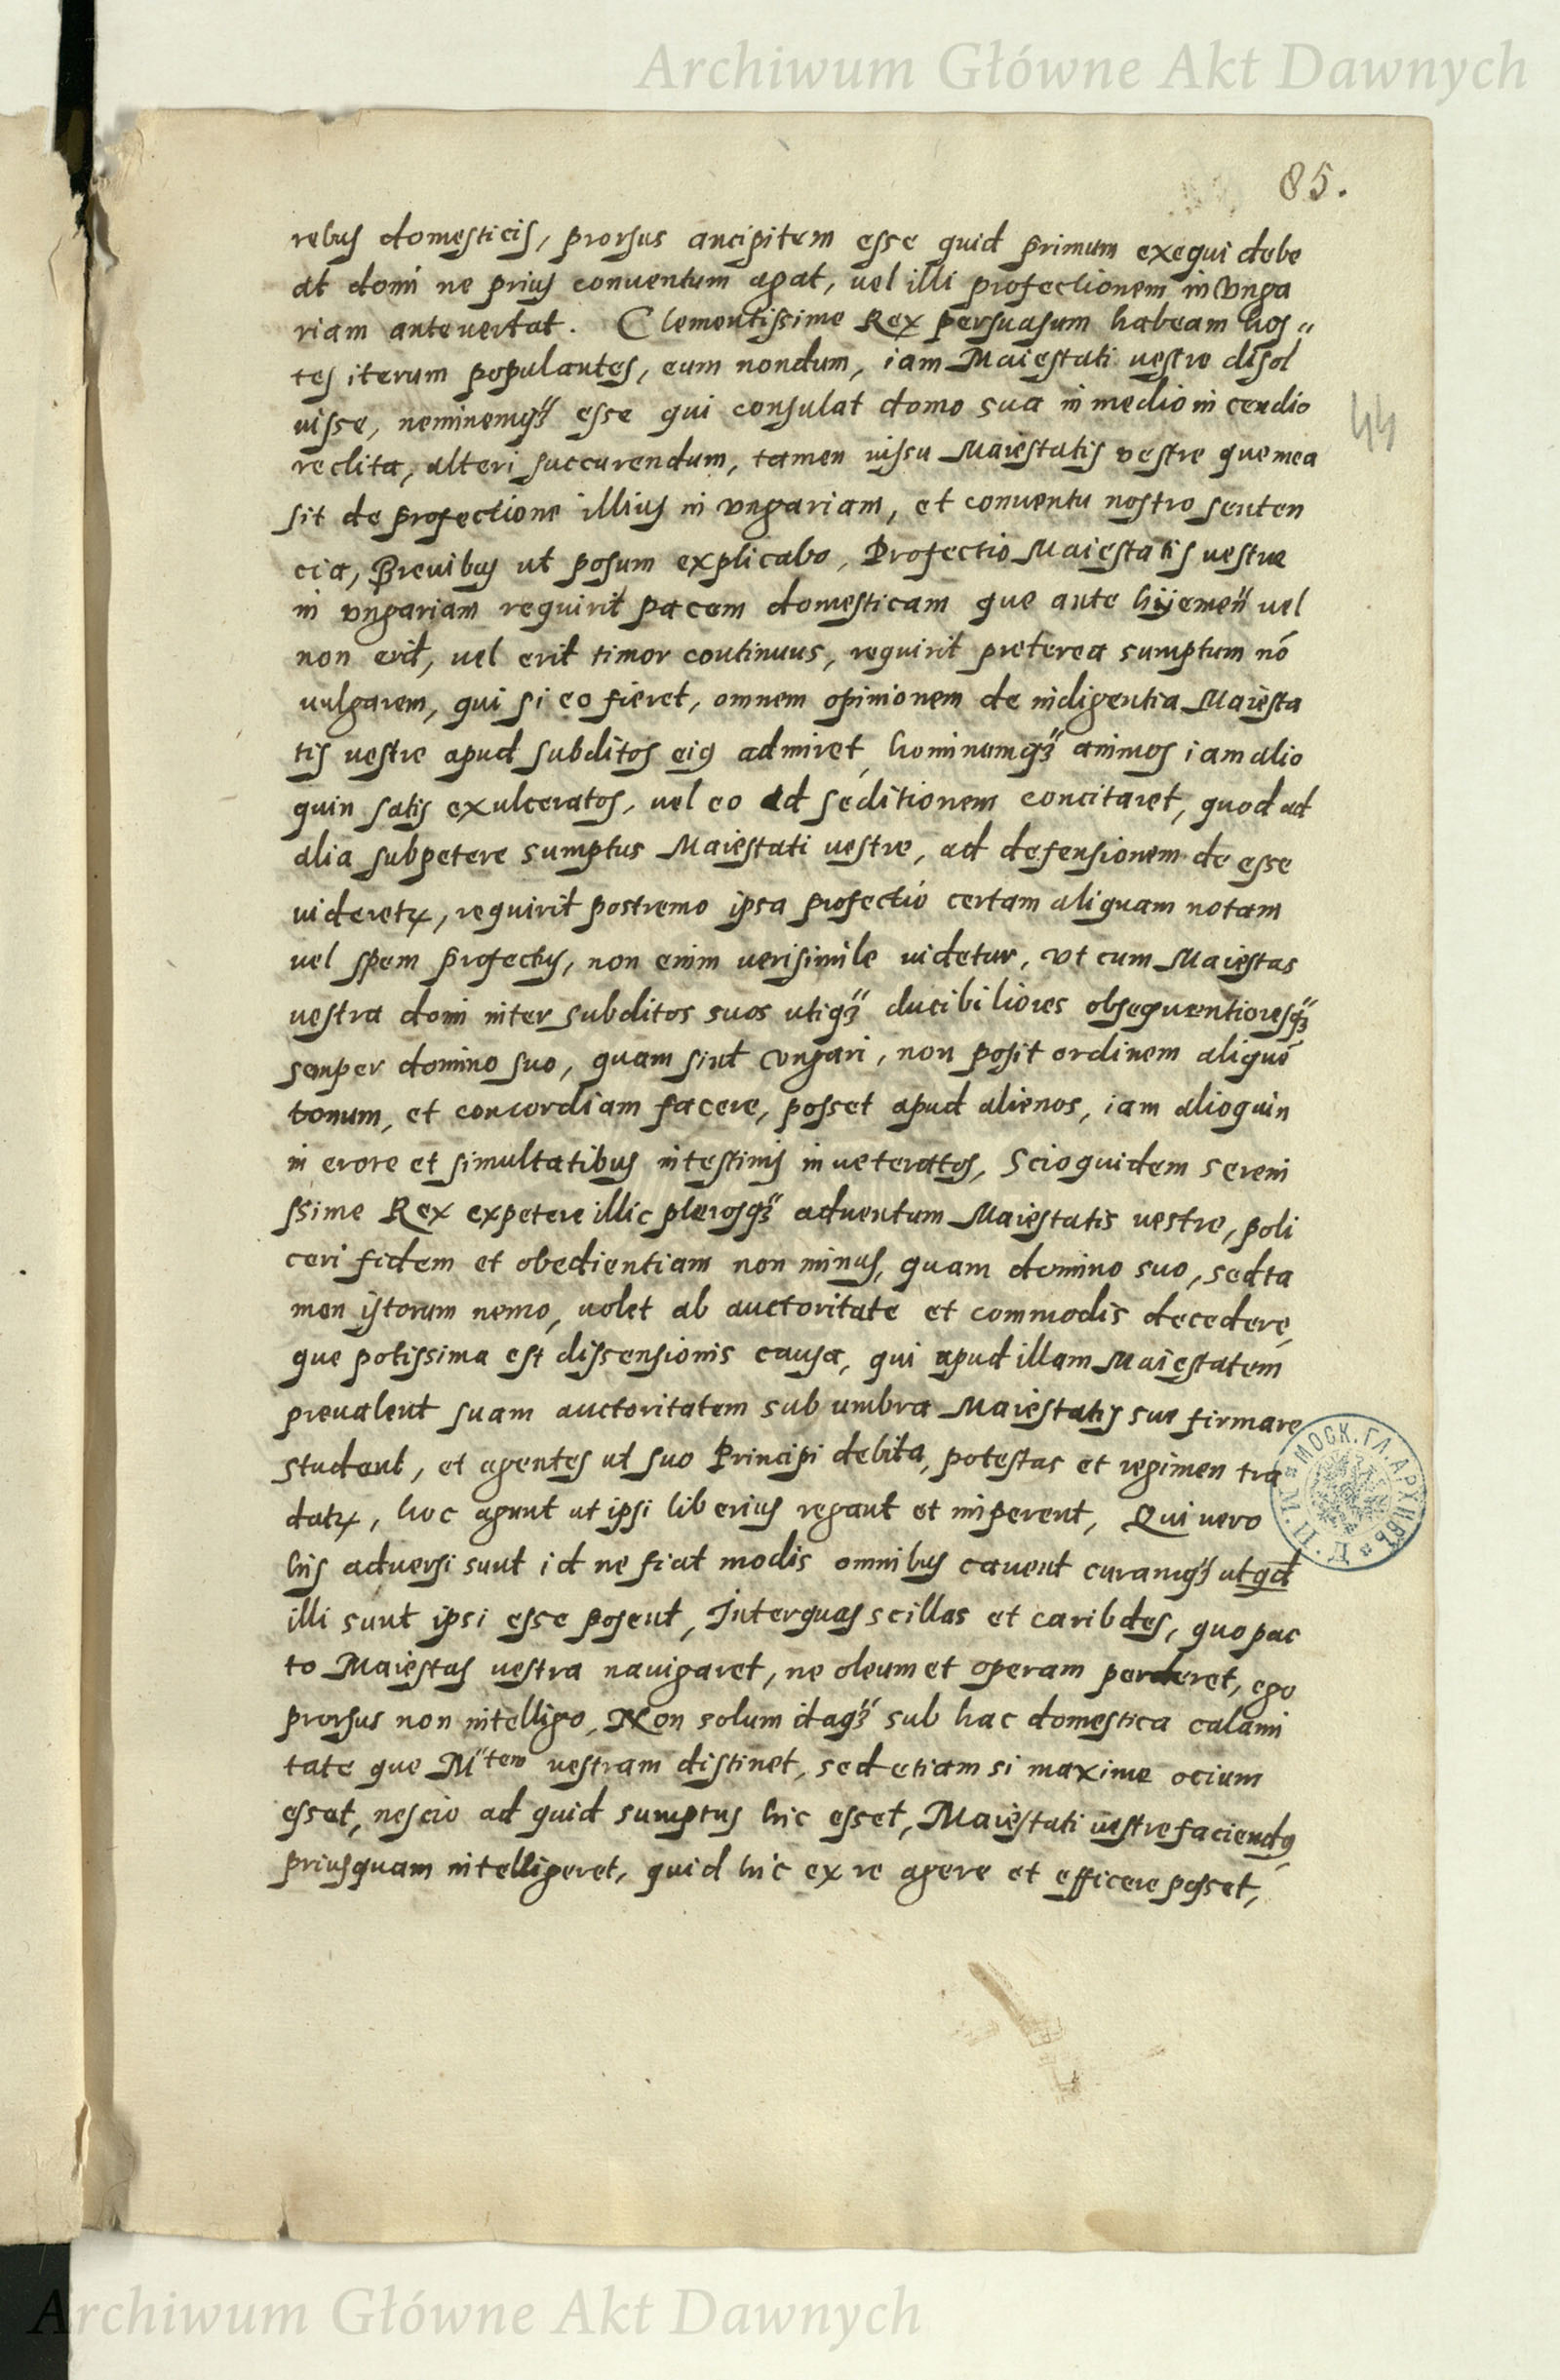 Archiwum Główne Akt Dawnych
85.
rebus domesticis, prorsus ancipitem esse quid primum exequi debe
at domi ne prius conuentum agat, uel illi profectionem in Vnga
riam anteuertat. Clementissime Rex persuasum habeam hos„
tes iterum populantes, eum nondum, iam Maiestati uestre disol
uisse, neminemqʒ esse qui consulat domo sua in medio incendio
44
reclita, alteri succurendum, tamen iussu Maiestatis vestre que mea
sit de profectione illius in vngariam, et conuentu nostro senten
cia, Breuibus ut posum explicabo, Profectio Maiestatis uestrae
in vngariam requirit pacem domesticam que ante hijemem uel
non erit, uel erit timor continuus, requirit preterea sumptum nō
uulgarem, qui si eo fieret, omnem opinionem de indigentia Maiesta
tis uestre apud subditos eiꝯ admiret, hominumqʒ animos iam alio
quin satis exulceratos, uel eo ad seditionem concitaret, quod ad
alia subpetere sumptus Maiestati uestre, ad defensionem de esse
uideretꝝ, requirit postremo ipsa profectio certam aliquam notam
uel spem profectus, non enim uerisimile uidetur, ut cum Maiestas
uestra domi inter subditos suos utiqʒ ducibiliores obsequentioresqʒ
semper domino suo, quam sint Vngari, non posit ordinem aliquē
bonum, et concordiam facere, posset apud alienos, iam alioquin
in erore et simultatibus intestinis inueteratos, Scio quidem sereni
ssime Rex expetere illic plerosqʒ aduentum Maiestatis uestre, poli
ceri fidem et obedientiam non minus, quam domino suo, sed ta
men istorum nemo, uolet ab auctoritate et commodis decedere,
que potissima est dissensionis causa, qui apud illam Maiestatem
preualent suam auctoritatem sub umbra Maiestatis sue firmare
student, et agentes ut suo Principi debita, potestas et regimen tra
datꝝ, hoc agunt ut ipsi liberius regant et imperent, Qui uero
his aduersi sunt id ne fiat modis omnibus cauent curantqʒ ut qd
illi sunt ipsi esse posent, Inter quas scillas et caribdes, quo pac
to Maiestas uestra nauigaret, ne oleum et operam perderet, ego
prorsus non intelligo, Non solum itaqʒ sub hac domestica calami
tate que M^tem uestram distinet, sed etiam si maxime ocium
esset, nescio ad quid sumptus hic esset, Maiestati uestre faciendꝯ
priusquam intelligeret, quid hic ex re agere et efficere posset,
МОСК. ГЛ. АРХИВЪ
Archiwum Główne Akt Dawnych